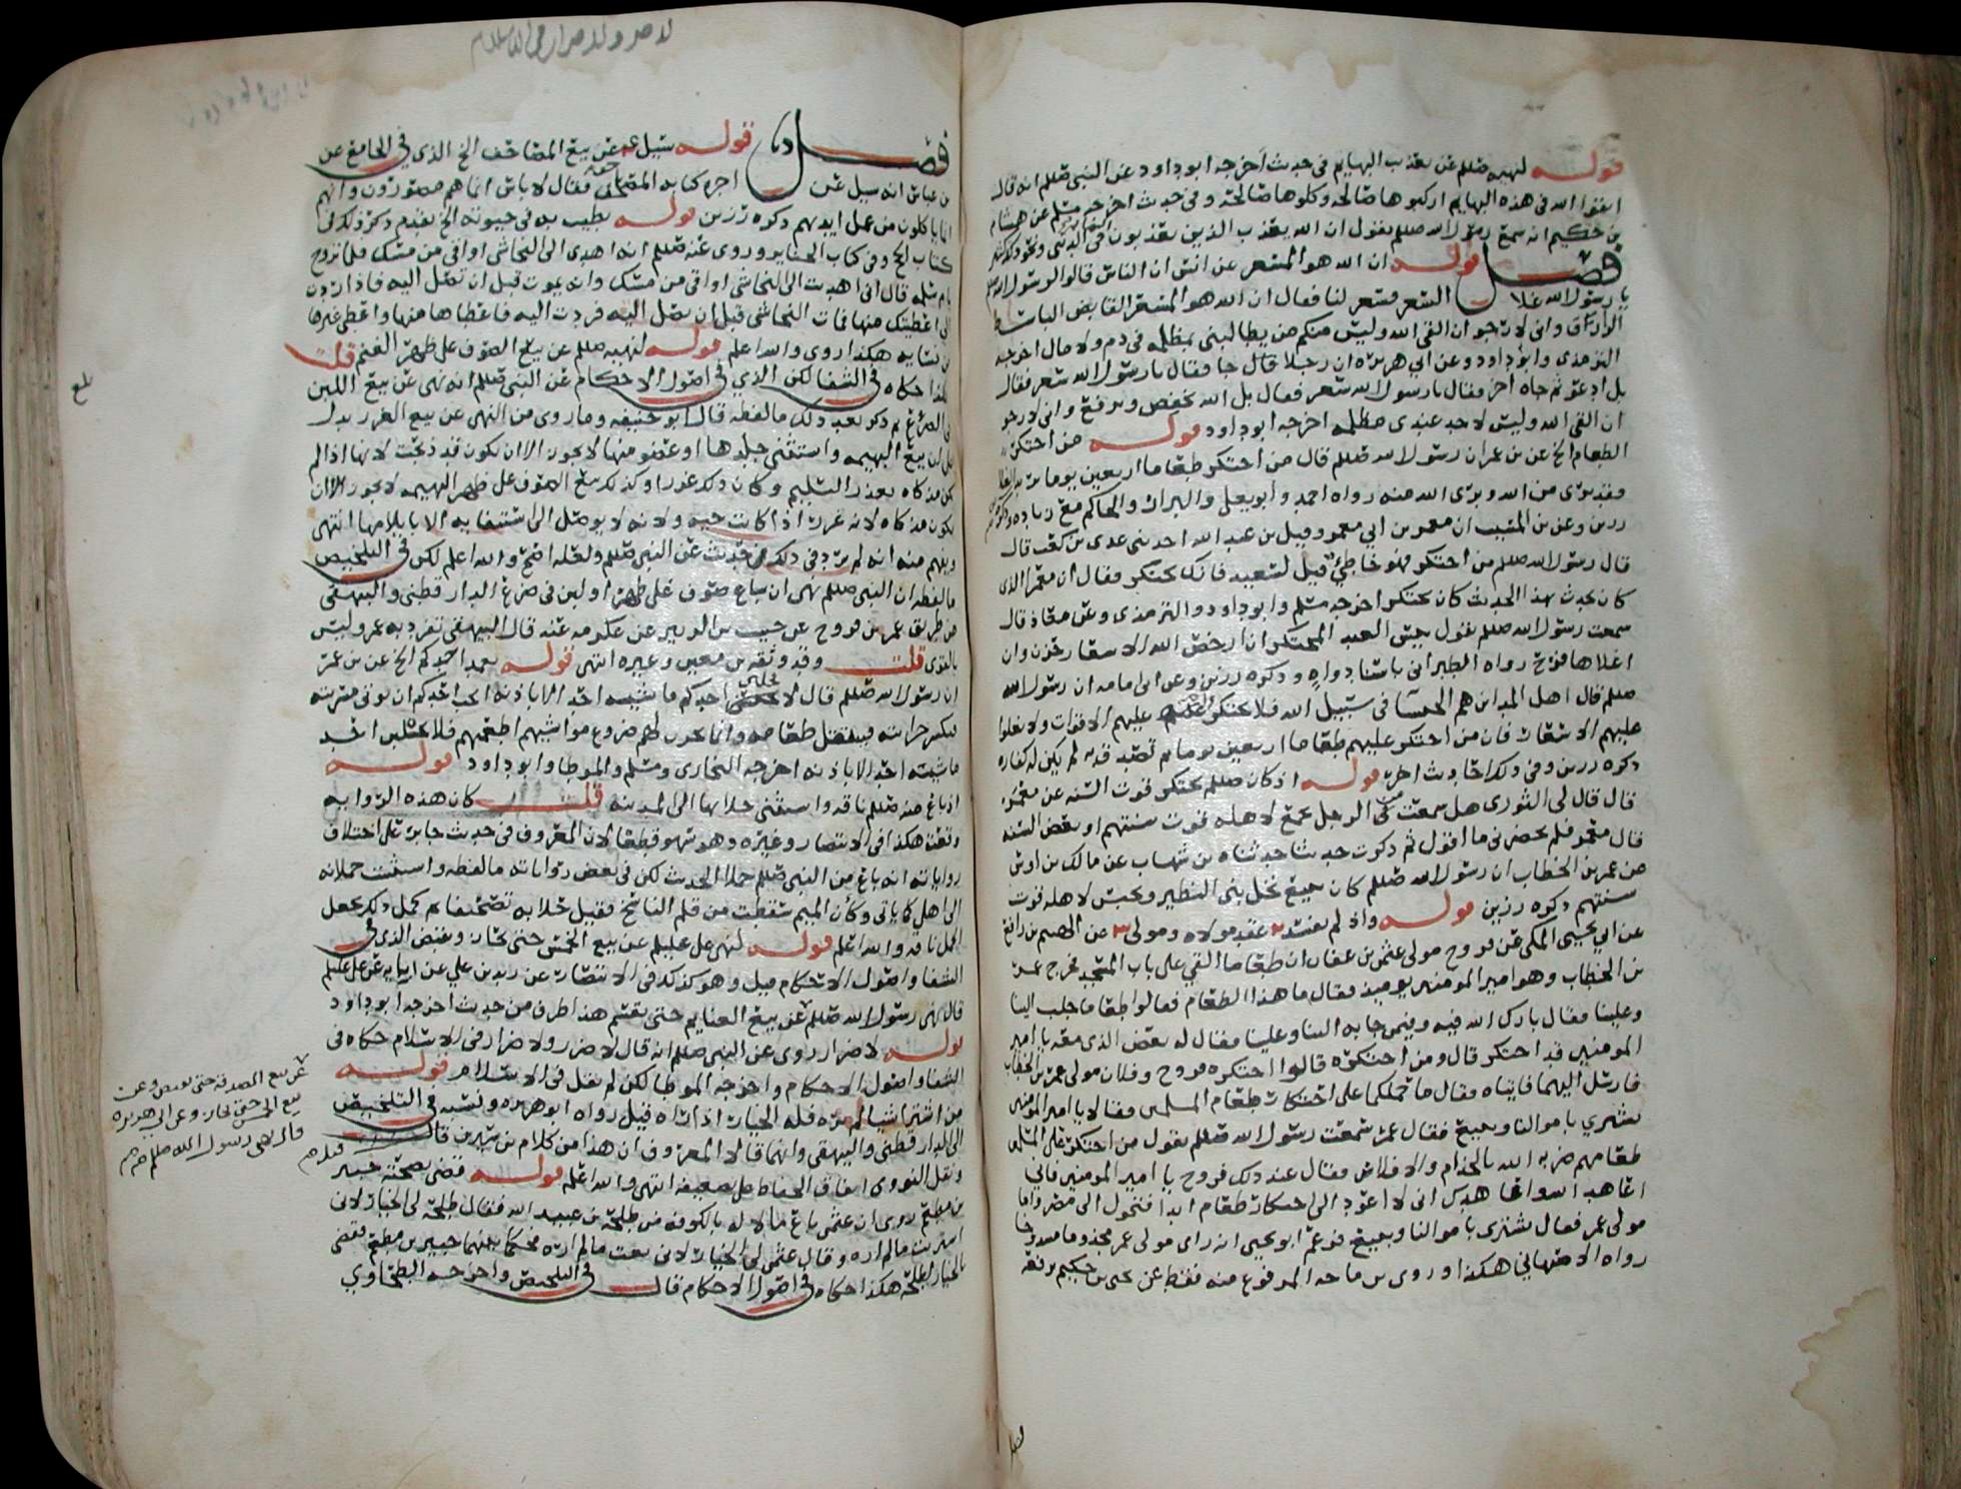 قوله لنهيه صللم عن تعذيب البهايم في حديث أخرجه ابو داود عن النبي صللم انه قال
اتقوا الله في هذه البهايم اركبوها صالحه وكلوها صالحة وفي حديث اخرجه مسلم عن هشام
بن حكيم انه سمع رسول الله صللم يقول ان الله يعذب الذين يعذبون الناس في الدنيى ونحو ذلك
فصل قوله ان الله هو المسعر عن انس ان الناس قالوا لرسول الله
يا رسول الله غلا السعر فسعر لنا فقال ان الله هو المسعر القابض الباسط
الرازق واني لارجو ان القى الله وليس منكم من يطالبني بمظلمه في دم ولا مال اخرجه
الترمذي وابو داود وعن ابي هريره ان رجلا قال جا فقال يا رسول الله سعر فقال
بل ادعو ثم جاه اخر فقال يا رسول الله سعر فقال بل الله يخفض ويرفع واني لارجو
ان القى الله وليس لاحد عندي مظلمه اخرجه ابو داود قوله من احتكر
الطعام الخ عن بن عمر ان رسول الله صللم قال من احتكر طعاما اربعين يوما
فقد برى من الله وبرى الله منه رواه احمد وابو يعلى والبزار والحاكم مع زياده
رزين وعن بن المسيب ان معمر بن ابي معمر وقيل بن عبد الله احد بني عدي بن كعب قال
قال رسول الله صللم من احتكر فهو خاطئ قيل لسعيد فانك تحتكر فقال ان معمرا الذي
كان يحدث بهذا الحديث كان يحتكر اخرجه مسلم وابو داود والترمذي وعن معاذ قال
سمعت رسول الله صللم يقول بيس العبد المحتكر ان ارخص الله الاسعار حزن وان
اغلاها فرح رواه الطبراني باسناد واهٍ وذكره رزين وعن ابي امامه ان رسول الله
صللم قال اهل المداين هم الحبسا في سبيل الله فلا تحتكروا عليهم الاقوات ولا تغلوا
عليهم الاسعار فان من احتكر عليهم طعاما اربعين يوما ثم تصدق به لم يكن له كفاره
ذكره رزين وفي ذلك احاديث اخر قوله اذ كان صللم يحتكر قوت السنه عن معمر
قال قال لي الثوري هل سمعت في الرجل يجمع لاهله قوت سنتهم او بعض السنه
قال معمر فلم يحضرني ما اقول ثم ذكرت حديثا حدثناه بن شهاب عن مالك بن اوس
عن عمر بن الخطاب ان رسول الله صللم كان يبيع نخل بني النظير ويحبس لاهله قوت
سنتهم ذكره رزين قوله واذ لم يفسد عقد مولاه ومولى عن الهيثم بن رافع
عن ابي يحيى المكي عن فروح مولى عثمن بن عفان ان طعاما القي على باب المسجد فخرج عمر
بن الخطاب وهو امير المومنين يوميذ فقال ما هذا الطعام فقالوا طعاما جلب الينا
وعلينا فقال بارك الله فيه وفيمن جا به الينا وعلينا فقال له بعض الذي معه يا امير
المومنين قد احتكر قال ومن احتكره قالوا احتكره فروح وفلان مولى عمر بن الخطاب
فارسل اليهما فاتياه فقال ما حملكما على احتكار طعام المسلمين فقالا يا امير المومنين
نشتري باموالنا ونبيع فقال عمر سمعت رسول الله صللم يقول من احتكر على المسلمين
طعامهم ضربه الله بالجذام والافلاس فقال عند ذلك فروح يا امير المومنين فاني
اعاهد الله واعاهدك اني لا اعود الى احتكار طعام ابدا فتحول الى مصر واما
مولى عمر فقال نشتري باموالنا ونبيع فزعم ابو يحيى انه راى مولى عمر مجذوما
رواه الاصفهاني هكذا وروى بن ماجه المرفوع منه فقط عن يحيى بن حكيم برفقه
لا ضر ولا ضرار في الاسلام
فصل قوله سيل عن بيع المصاحف الخ الذي في الجامع عن
بن عباس انه سيل عن اجره كتابه المصاحف فقال لا باس انما هم مصورون وانهم
انما ياكلون من عمل ايديهم ذكره رزين قوله يطيب به في حيوته الخ تقدم ذكر ذلك في
كتاب الحج وفي كتاب الجنايز وروى عنه صللم انه اهدى الى النجاشي اواقي من مسك فلما تزوج
ام سلمه قال اني اهديت الى النجاشي اواقي من مسك وانه يموت قبل ان تصل اليه فاذا ردت
الي اعطيتك منها فمات النجاشي قبل ان يصل اليه فردت اليه فاعطاها منها واعطى غيرها
من نسايه هكذا روي والله اعلم قوله لنهيه صللم عن بيع الصوف على ظهر الغنم قلت
هكذا حكاه في الشفا لكن الذي في اصول الاحكام عن النبي صللم انه نهى عن بيع اللبن
في الضرع ثم ذكر بعد ذلك ما لفظه قال ابو حنيفه وما روي من النهي عن بيع الغرر يدل
على ان بيع البهيمه واستثنى جلدها او عضو منها لا يجوز الا ان تكون قد ذبحت لانها اذا لم
تكن مذكاه بعذر التسليم وكان ذلك غررا وكذلك بيع الصوف على ظهر البهيمه لا يجوز الا ان
تكون مذكاه لانه غرر اذا كانت حيه ولانه لا يوصل الى استيفايه الا بايلامها انتهى
ويفهم منه انه لم يرد في ذلك حديث عن النبي صللم ولعله اصح والله اعلم لكن في التلخيص
ما لفظه ان النبي صللم نهى ان يباع صوف على ظهر او لبن في ضرع الدار قطني والبيهقي
من طريق عمر بن فروح عن حبيب بن الزبير عن عكرمه عنه قال البيهقي تفرد به عمر وليس
بالقوى قلت وقد وثقه بن معين وغيره انتهى قوله يعمد احدكم الخ عن بن عمر
ان رسول الله صللم قال لا يحلبن احدكم ماشيه احد الا باذنه ايحب احدكم ان توتى مشربته
فتكسر خزانته فينتقل طعامه وانما تخزن لهم ضروع مواشيهم اطعمتهم فلا يحلبن احد
ماشية احد الا باذنه اخرجه البخاري ومسلم والموطا وابو داود قوله
اذ باع منه صللم ناقه واستثنى حلابها الى المدينه قلت كان هذه الروايه
وقعت هكذا في الانتصار وغيره وهو سهو قطعا لان المعروف في حديث جابر على اختلاف
رواياته انه باع من النبي صللم جملا الحديث لكن في بعض رواياته ما لفظه واستثنيت حملانه
الى اهلي كما ياتي وكأن الميم سقطت من قلم الناسخ فقيل حلابه تصحيفا ثم كمل ذلك بجعل
الجمل ناقه والله اعلم قوله لنهي علي عليلم عن بيع الخمس حتى يحاز ويقبض الذي في
الشفا واصول الاحكام قيل وهو كذلك في الانتصار عن زيد بن علي عن ابايه عن علي عليلم
قال نهى رسول الله صللم عن بيع الغنايم حتى تقسم هذا طرف من حديث اخرجه ابو داود
قوله لا ضرار روي عن النبي صللم انه قال لا ضرر ولا ضرار في الاسلام حكاه في
الشفا واصول الاحكام واخرجه الموطا لكن لم يقل في الاسلام قوله
من اشترا شيا لم يره فله الخيار اذا راه قيل رواه ابو هريره ونسبه في التلخيص
الى الدار قطني والبيهقي وانهما قالا المعروف ان هذا من كلام بن سيرين قال
ونقل النووي اتفاق الحفاظ على تضعيفه انتهى والله اعلم قوله قضى بصحته جبير
بن مطعم روي ان عثمن باع مالا له بالكوفه من طلحه بن عبيد الله فقال طلحه لي الخيار لاني
اشتريت ما لم اره وقال عثمن لي الخيار لاني بعت ما لم اره فحكما بينهما جبير بن مطعم فقضى
بالخيار لطلحه هكذا حكاه في اصول الاحكام قال في التلخيص واخرجه الطحاوي
عن بيع الصدقه حتى تقبض وعن
بيع الخمس حتى يحاز وعن ابي هريره
قال نهى رسول الله صللم